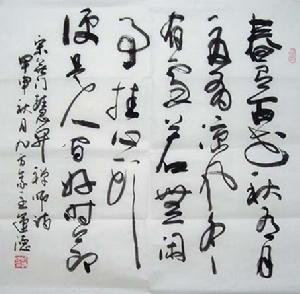 春有百花秋有月
夏有涼風冬
有雪若無閑
事挂心頭
便是人間好時節
宋無門慧開禪師詩
甲申秋月